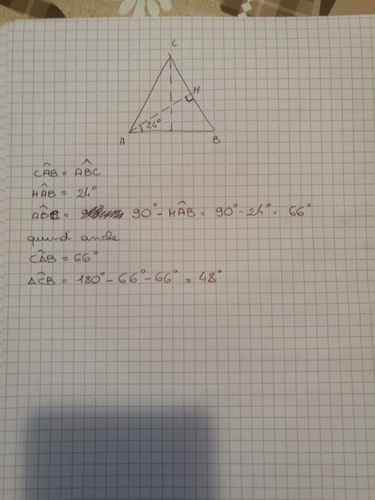 C
H
24°
A
B
CÂB = AB̂C
HÂB = 24°
AB̂C = 90° - HÂB = 90° - 24° = 66°
quindi anche
CÂB = 66°
AĈB = 180° - 66° - 66° = 48°